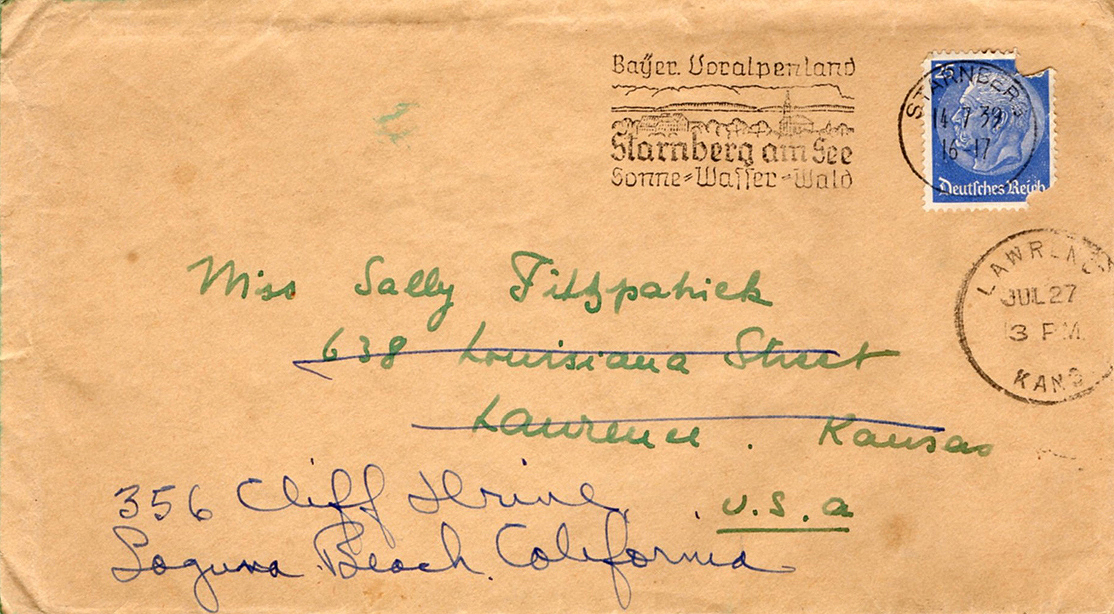 Bayer. Voralpenland
Starnberg am See
Sonne-Wasser-Wald
STARNBERG
14.7.39
16-17
25
Deutsches Reich
LAWRENCE
JUL 27
3 PM
KANS
Miss Sally Fitzpatrick
638 Louisiana Street
Lawrence. Kansas
U.S.a
356 Cliff Drive,
Laguna Beach. California